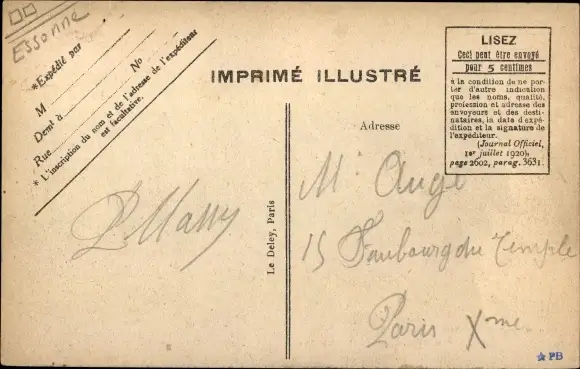 Essonne
*Expédié par
M
No
Demt à
Rue
* L'inscription du nom et de l'adresse de l'expéditeur
est facultative.
IMPRIMÉ ILLUSTRÉ
LISEZ
Ceci peut être envoyé
pour 5 centimes
à la condition de ne por-
ter d'autre indication
que les noms, qualité,
profession et adresse des
envoyeurs et des desti-
nataires, la date d'expé-
dition et la signature de
l'expéditeur.
(Journal Officiel,
1er juillet 1920),
page 2602, parag. 3631.
Adresse
P. Massy
Le Deley, Paris
Mr Ange
15 Faubourg du Temple
Paris Xme
PB